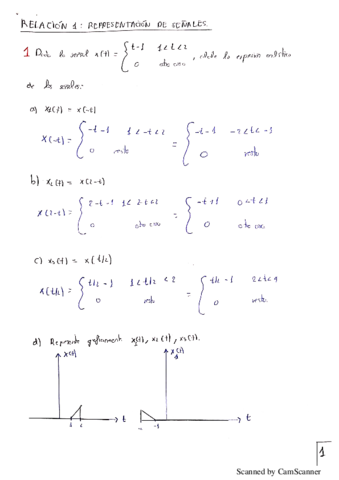 RELACIÓN 1: REPRESENTACIÓN DE SEÑALES
1 Dada la señal x(t) = { t-1 1<t<2
0 otro caso , calcule la expresión analítica
de las señales:
a) x₁(t) = x(-t)
x(-t) = { -t-1 1<-t<2 = { -t-1 -2<t<-1
0 resto 0 resto
b) x₂(t) = x(2-t)
x(2-t) = { 2-t-1 1<2-t<2 = { -t+1 0<t<1
0 otro caso 0 otro caso
c) x₃(t) = x(t/2)
x(t/2) = { t/2-1 1<t/2<2 = { t/2-1 2<t<4
0 resto 0 resto
d) Represente gráficamente x₁(t), x₂(t), x₃(t).
x(t) x(t)
t t
1
Scanned by CamScanner